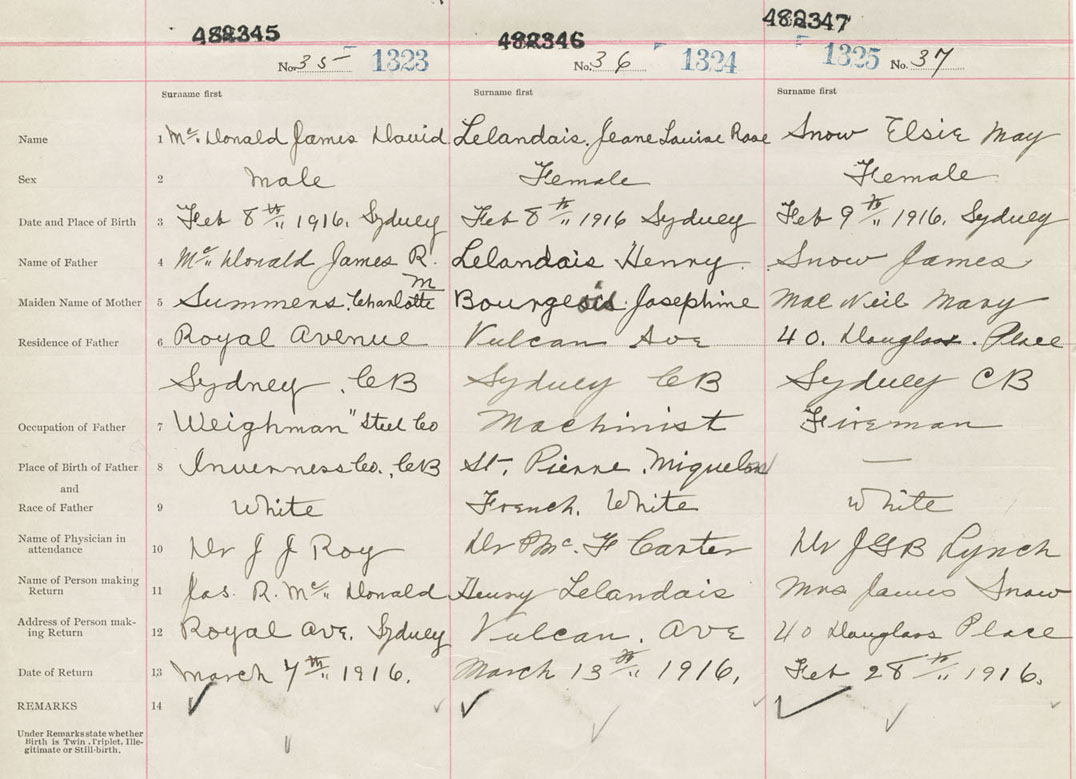 482345 482346 482347
No. 35 1323 No. 36 1324 1325 No. 37
Surname first Surname first Surname first
Name 1 Mc Donald James David Lelandais. Jeane Louise Rose Snow Elsie May
Sex 2 Male Female Female
Date and Place of Birth 3 Feb 8th 1916. Sydney Feb 8th 1916 Sydney Feb 9th 1916. Sydney
Name of Father 4 Mc Donald James R. Lelandais Henry. Snow James
Maiden Name of Mother 5 Summers. Charlotte M Bourgeois. Josephine Mac Neil Mary
Residence of Father 6 Royal Avenue Vulcan Ave 40. Douglass. Place
Sydney. CB Sydney CB Sydney CB
Occupation of Father 7 Weighman "Steel Co Machinist Fireman
Place of Birth of Father 8 Inverness Co., CB St. Pierre. Miquelon —
and
Race of Father 9 White French. White White
Name of Physician in
attendance 10 Dr J J Roy Dr Mc. F Carter Dr JGB Lynch
Name of Person making
Return 11 Jas. R. Mc Donald Henry Lelandais Mrs James Snow
Address of Person mak-
ing Return 12 Royal Ave. Sydney Vulcan. Ave 40 Douglass Place
Date of Return 13 March 7th 1916. March 13th 1916. Feb 28th 1916.
REMARKS 14
Under Remarks state whether
Birth is Twin, Triplet, Ille-
gitimate or Still-birth.